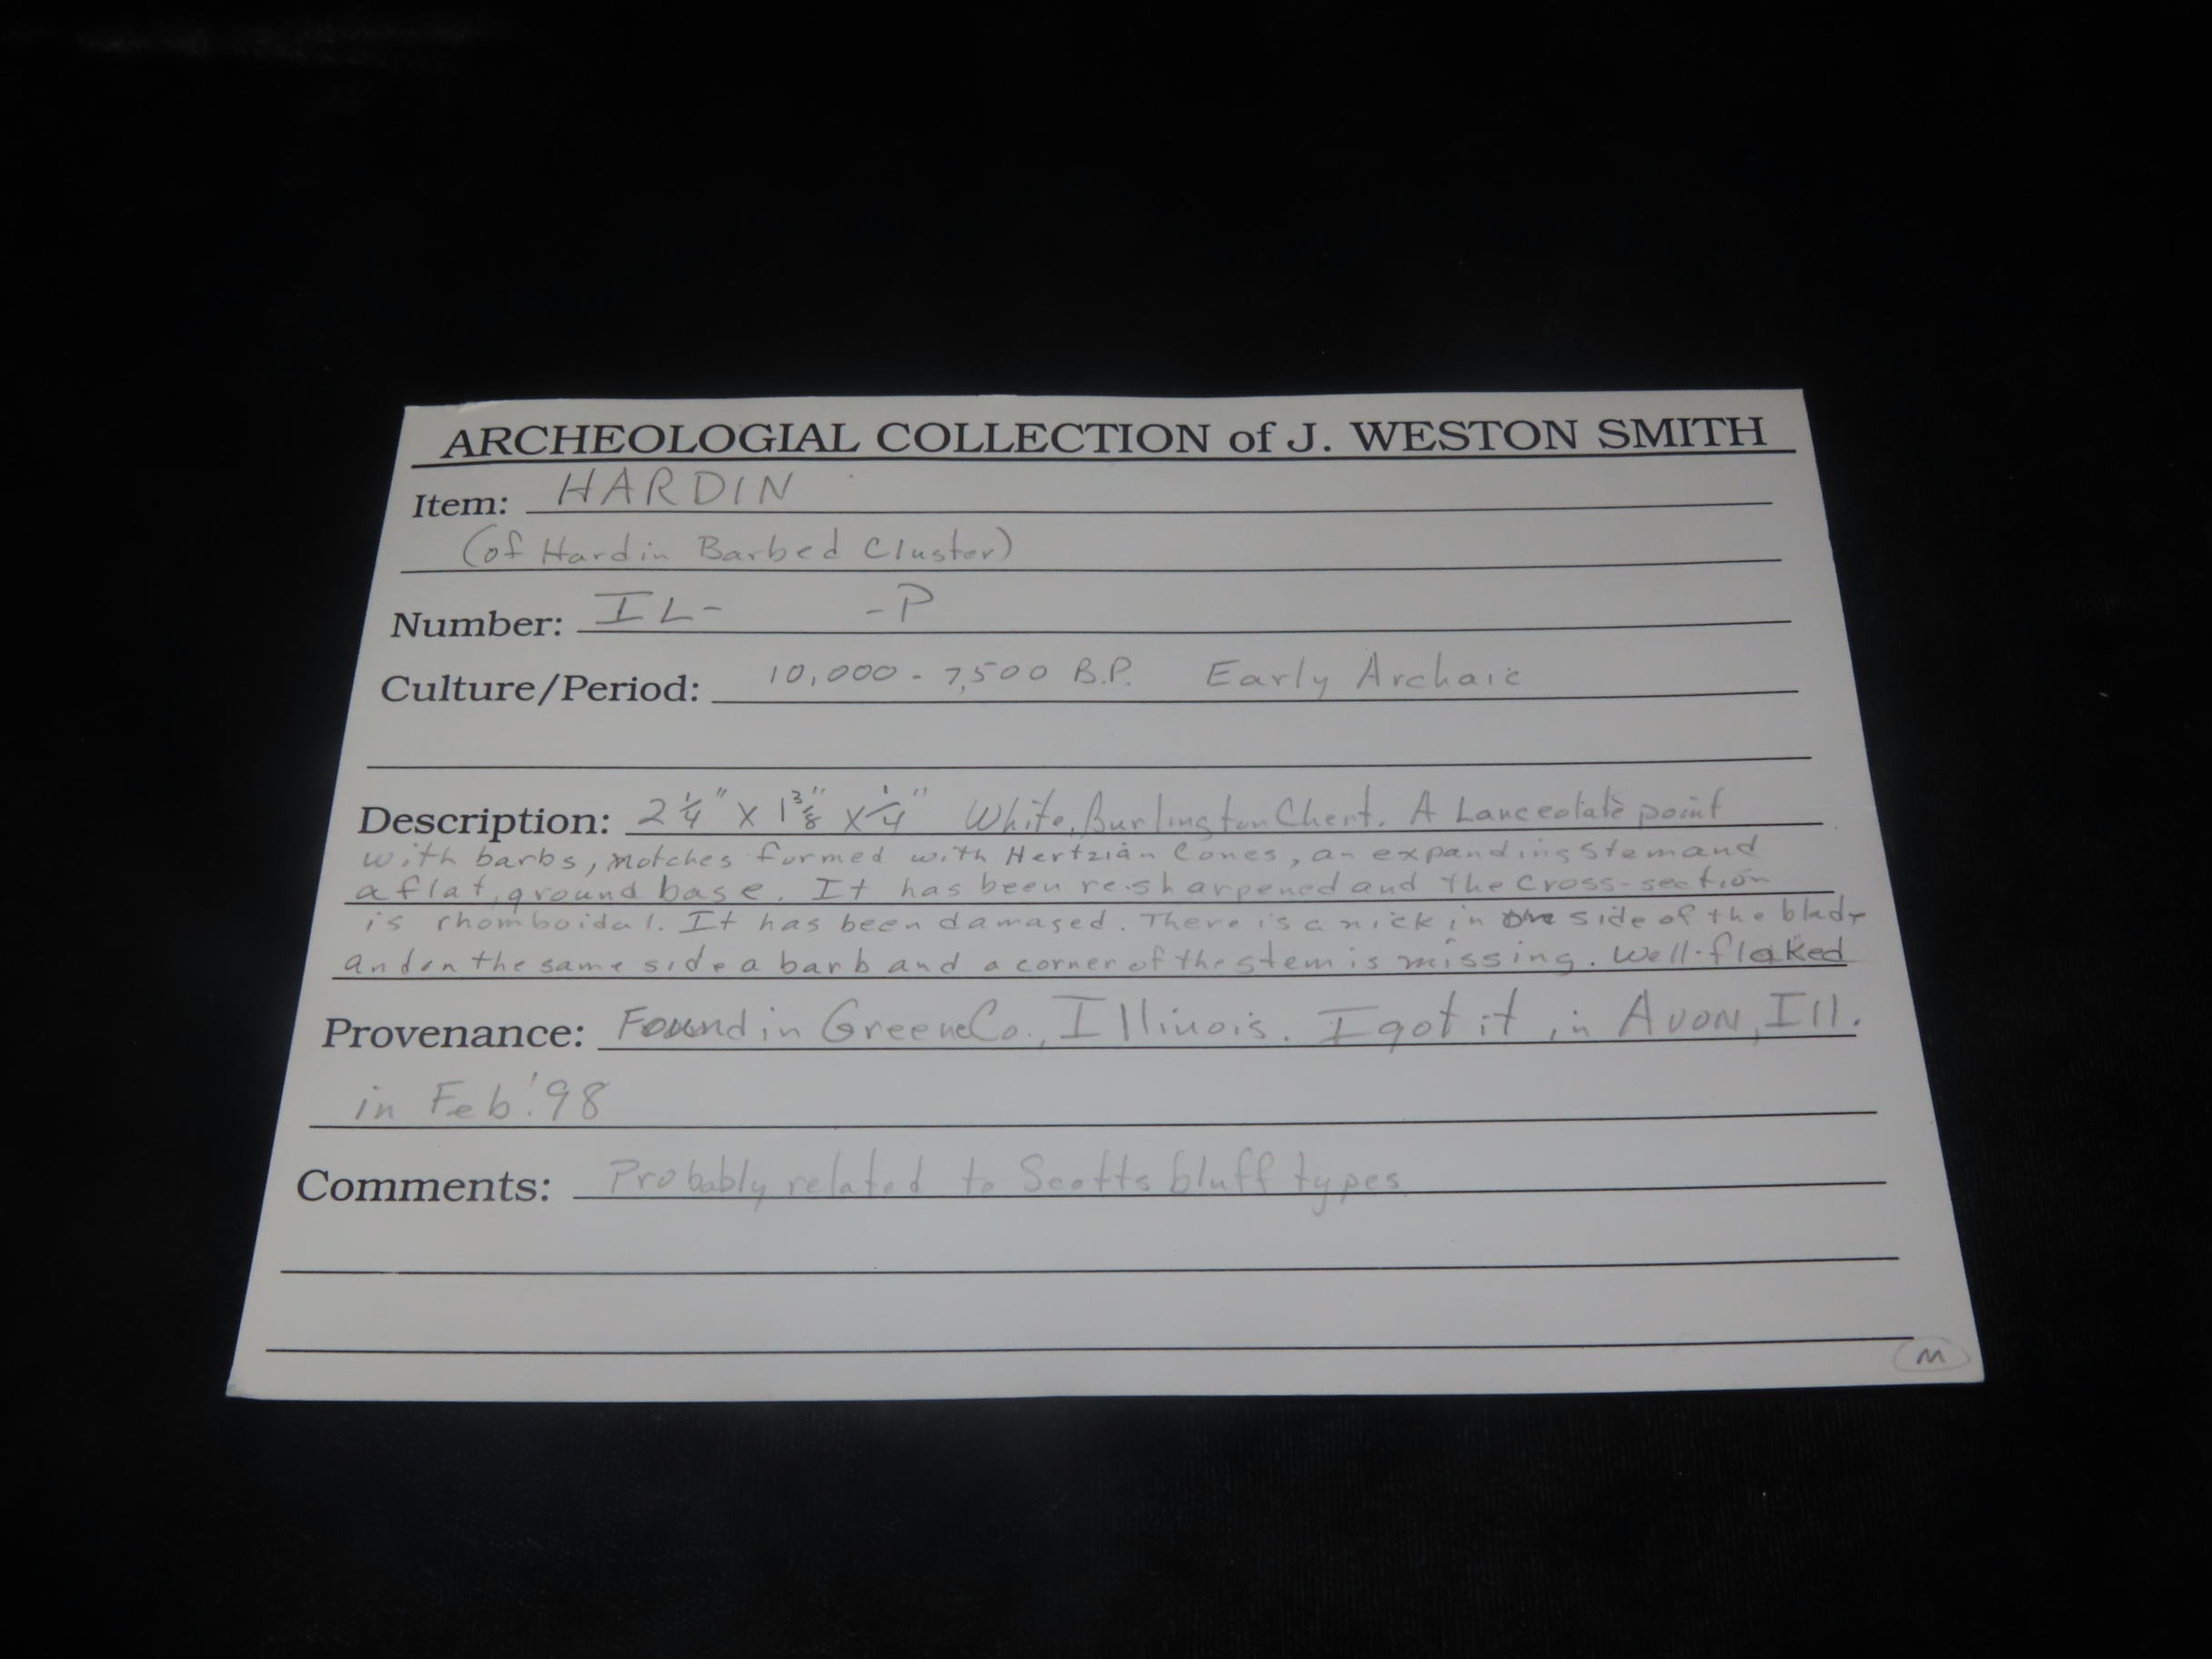 ARCHEOLOGIAL COLLECTION of J. WESTON SMITH
Item: HARDIN
(of Hardin Barbed Cluster)
Number: IL- -P
Culture/Period: 10,000 - 7,500 B.P. Early Archaic
Description: 2 1/4" X 1 3/8" X 1/4" White, Burlington Chert. A Lanceolate point
with barbs, notches formed with Hertzian Cones, an expanding stem and
a flat, ground base. It has been resharpened and the cross-section
is rhomboidal. It has been damaged. There is a nick in one side of the blade
and on the same side a barb and a corner of the stem is missing. Well-flaked
Provenance: Found in Greene Co., Illinois. I got it in Avon, Ill.
in Feb. '98
Comments: Probably related to Scottsbluff types
M